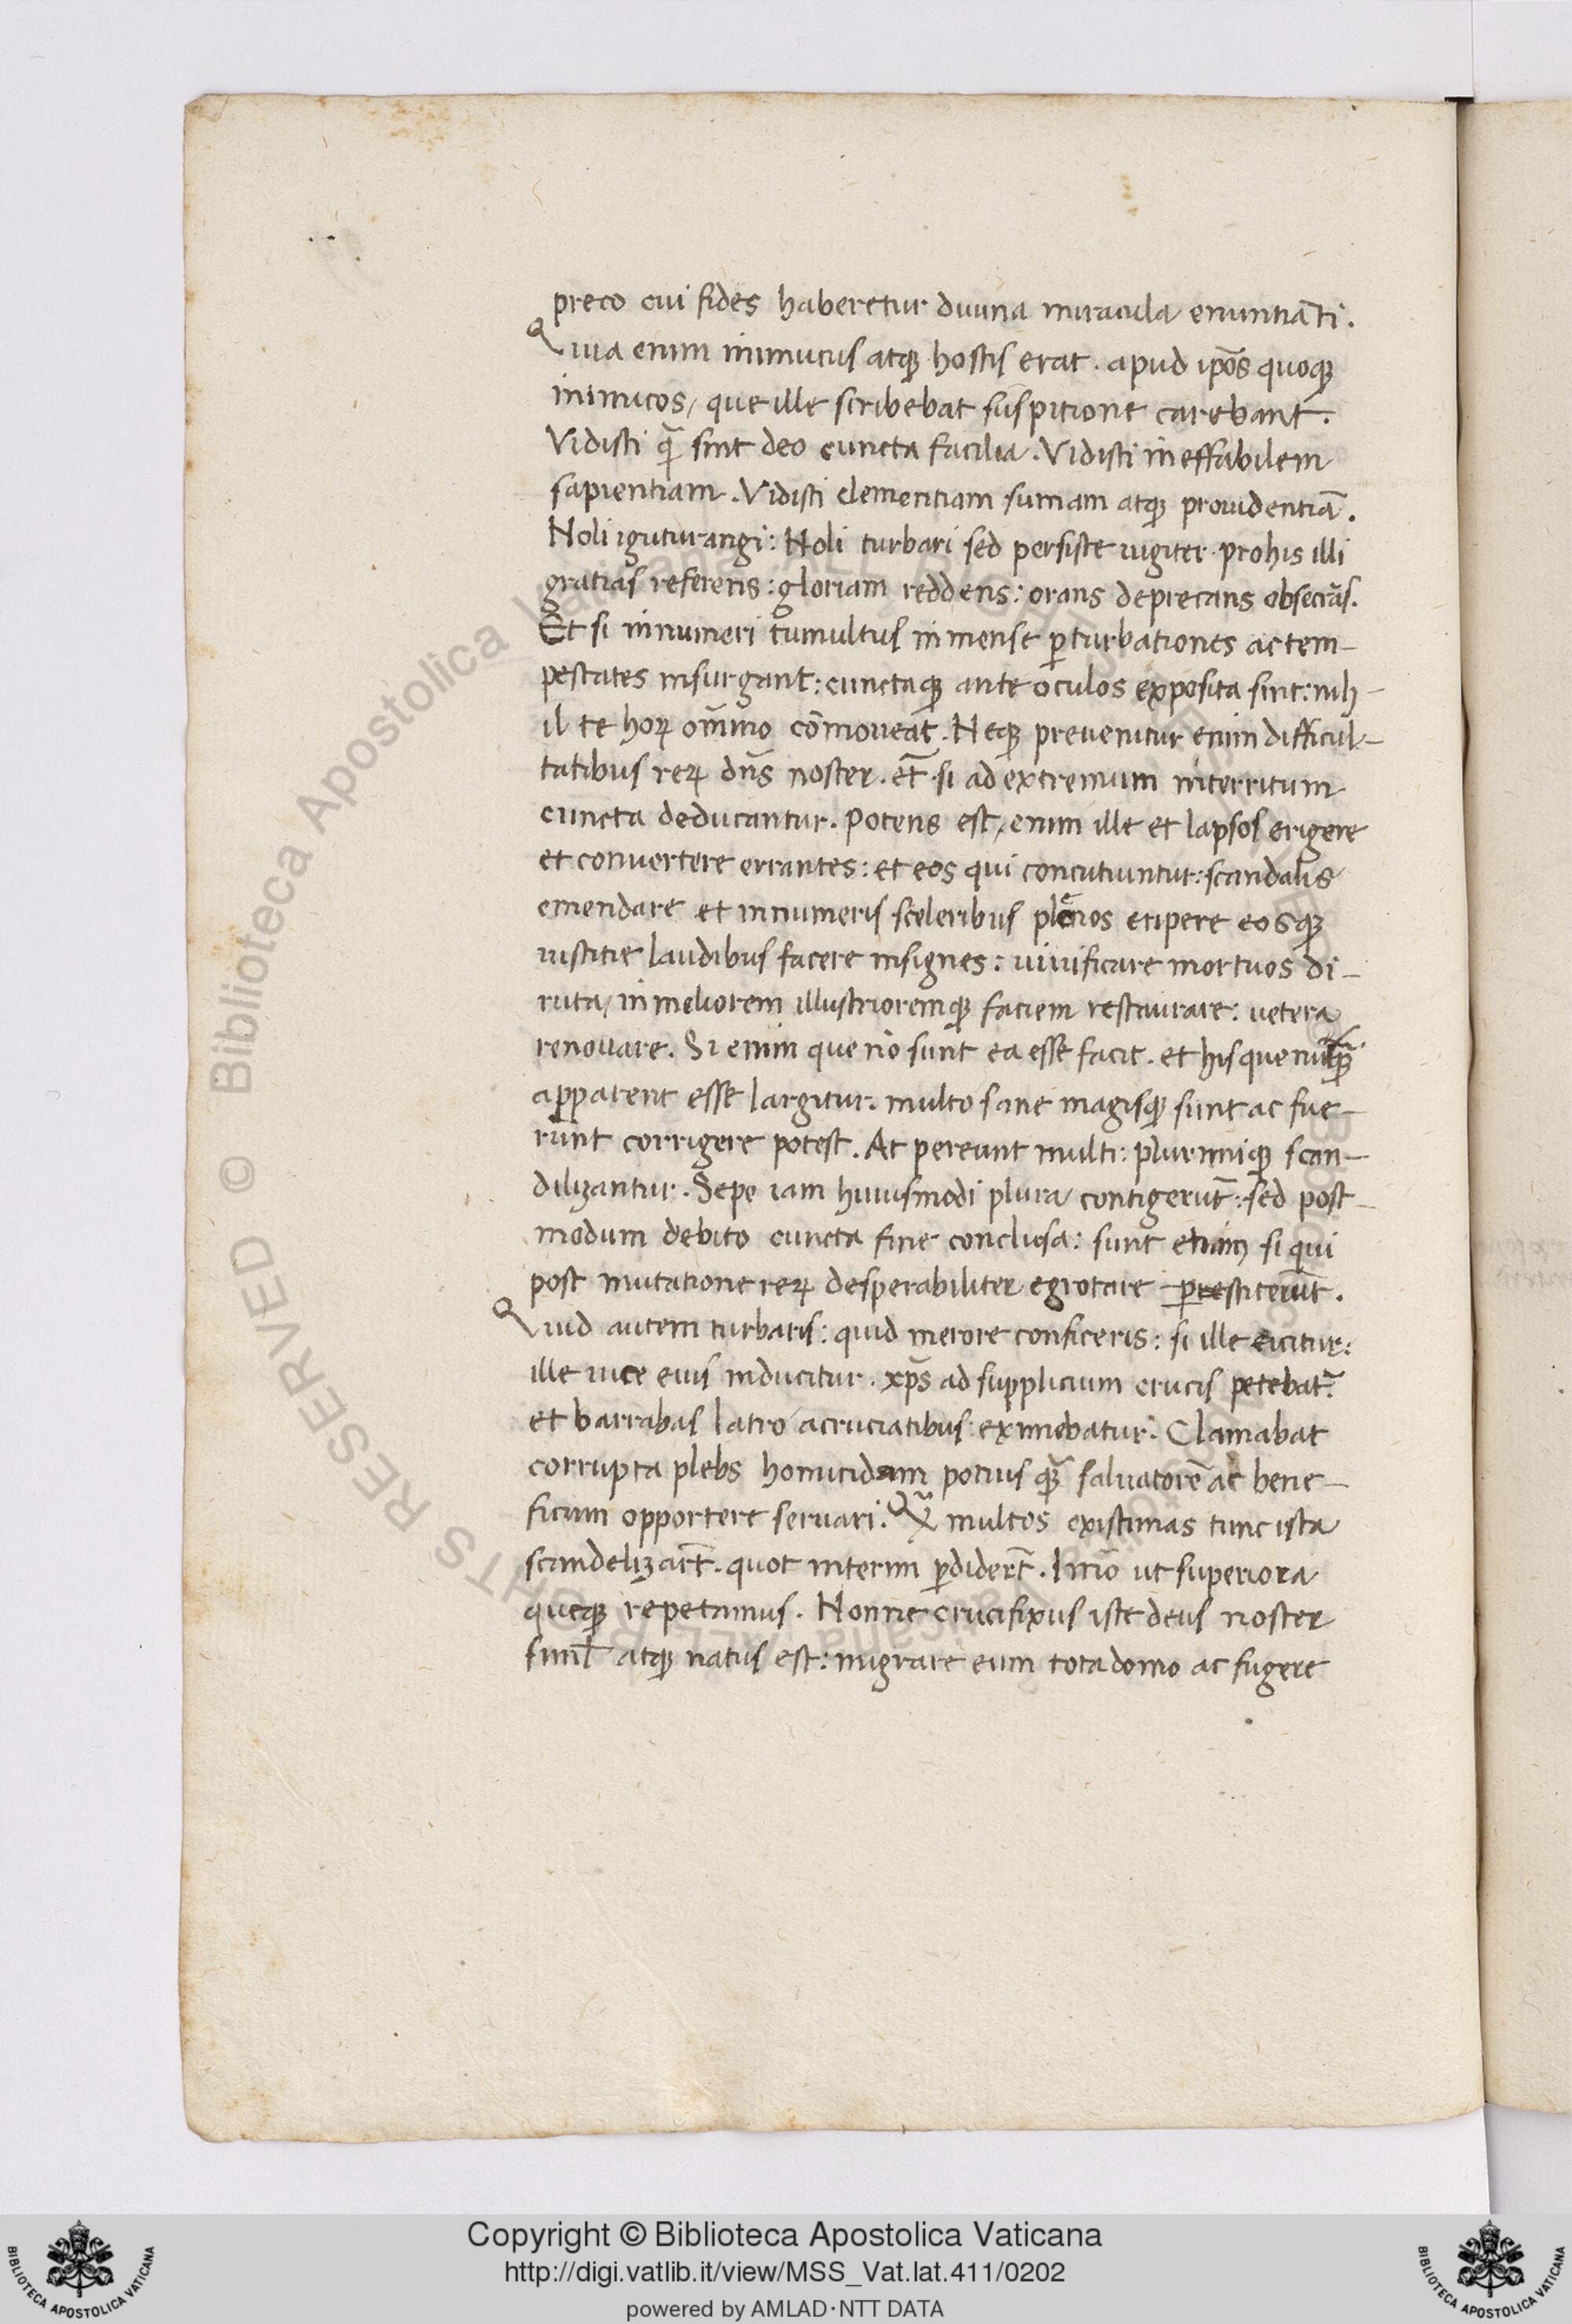 preco cui fides haberetur diuina miracula enuntiāti.
Quia enim inimicus atqꝫ hostis erat. apud ip̄os quoqꝫ
inimicos, que ille scribebat suspitione carebant.
Vidisti q̄ sint deo cuncta facilia. Vidisti ineffabilem
sapientiam. Vidisti clementiam sumam atqꝫ prouidentiā.
Noli igitur angi: Noli turbari sed persiste iugiter pro his illi
gratias referens: gloriam reddens: orans deprecans obsecrās.
Et si innumeri tumultus inmense ꝑturbationes ac tem-
pestates insurgant: cunctaqꝫ ante oculos exposita sint: nih-
il te hoꝝ om̄ino cōmoueat. Neqꝫ preuenitur enim difficul-
tatibus reꝝ dn̄s noster. et̄ si ad extremum interritum
cuncta deducantur. Potens est, enim ille et lapsos erigere
et conuertere errantes: et eos qui concutiuntur: scandalis
emendare et innumeris sceleribus plenos eripere eosqꝫ
iustitie laudibus facere insignes: uiuificare mortuos di-
ruta, in meliorem illustrioremqꝫ faciem restaurare: uetera
renouare. Si enim que nō sunt ea esse facit. et his que nūqꝫ̄
apparent esse largitur. multo sane magisqꝫ sunt ac fue-
runt corrigere potest. At pereunt multi: plurimiqꝫ scan-
dilizantur. Sepe iam huiusmodi plura contigerūt: sed post-
modum debito cuncta fine conclusa: sunt etiam si qui
post mutatione reꝝ desperabiliter egrotare perstiterūt.
Quid autem turbaris: quid merore conficeris: si ille eicitur:
ille uice eius inducitur. xp̄s ad supplicium crucis petebat᷑
et barrabas latro a cruciatibus eximebatur: Clamabat
corrupta plebs homicidam potius qꝫ̄ saluatorē ac bene-
ficum opportere seruari. Q̄ multos existimas tunc ista
scandelizar̄t. quot interim ꝑdider̄t. Imō ut superiora
queqꝫ repetamus. Nonne crucifixus iste deus noster
siml̄ atqꝫ natus est: migrare eum tota domo ac fugere
Copyright © Biblioteca Apostolica Vaticana
http://digi.vatlib.it/view/MSS_Vat.lat.411/0202
powered by AMLAD·NTT DATA